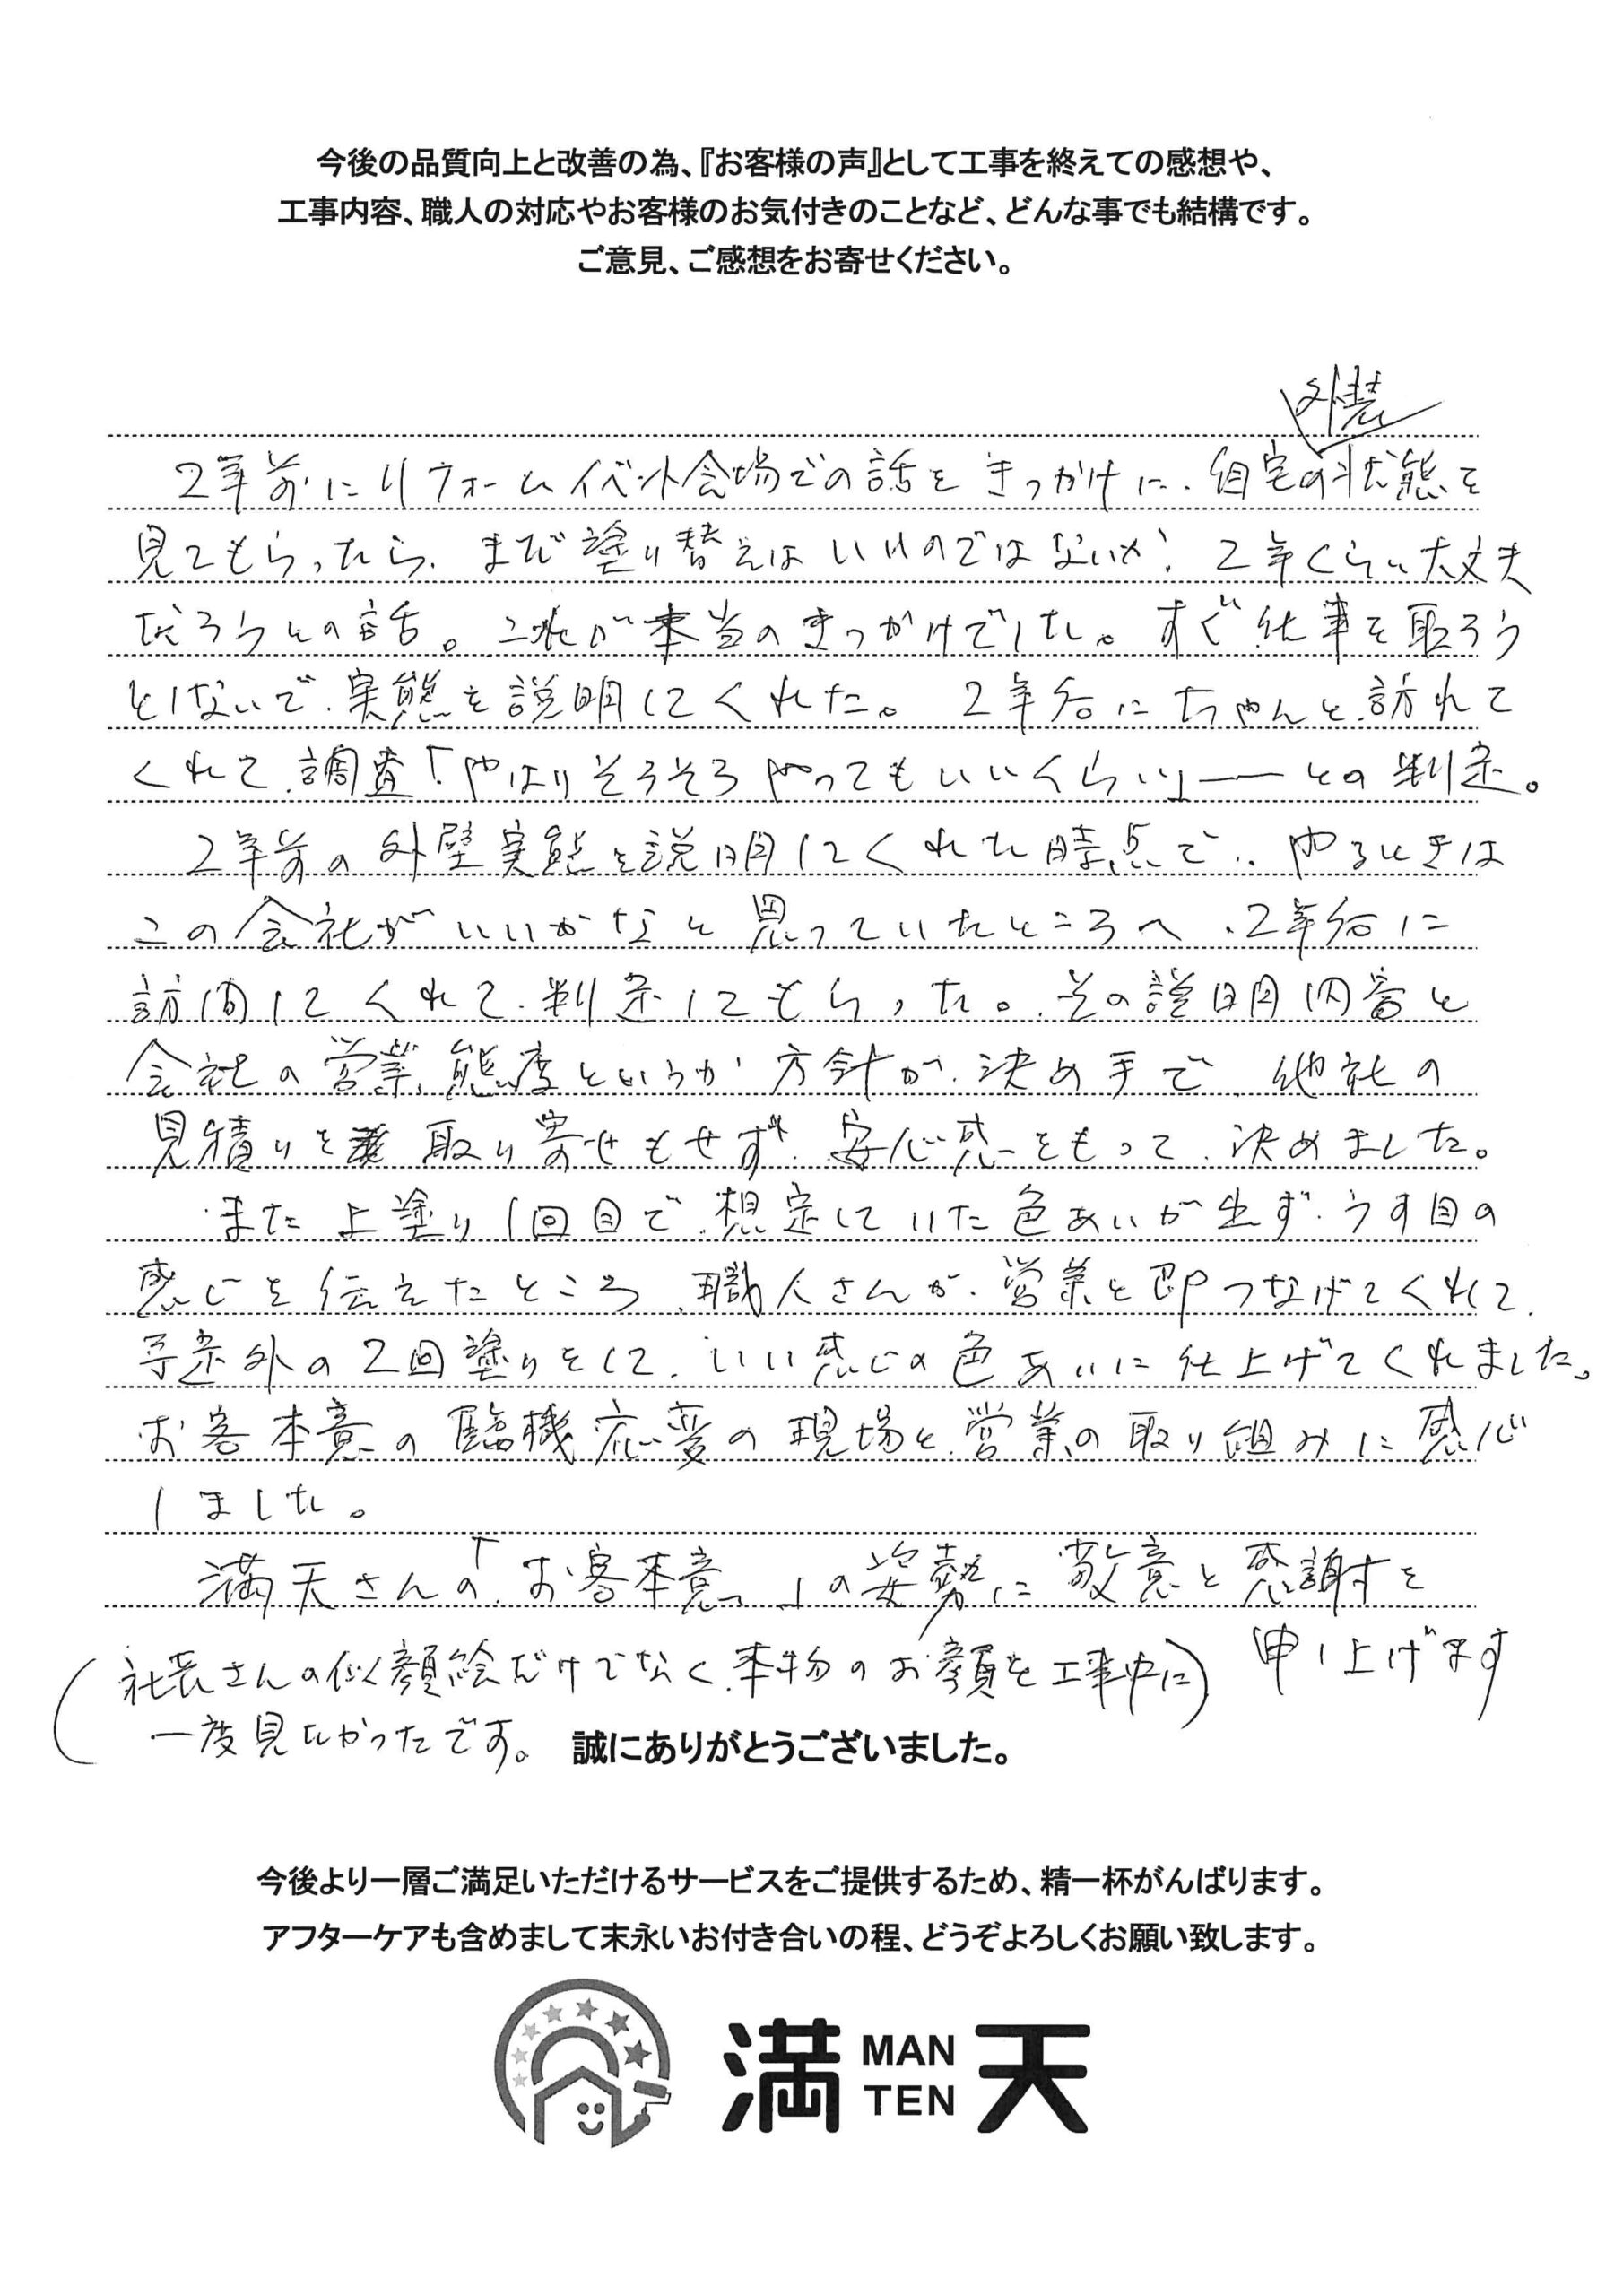 今後の品質向上と改善の為、『お客様の声』として工事を終えての感想や、
工事内容、職人の対応やお客様のお気付きのことなど、どんな事でも結構です。
ご意見、ご感想をお寄せください。
外壁
2年前にリフォームイベント会場での話をきっかけに、自宅の状態を
見てもらったら、まだ塗り替えはいいのではないか、2年くらい大丈夫
だろうとの話。これが本当のきっかけでした。すぐ仕事を取ろう
としないで、実態を説明してくれた。2年后にちゃんと訪れて
くれて、調査「やはりそうそろやってもいいくらい」――との判定。
2年前の外壁実態を説明してくれた時点で、やるときは
この会社がいいかなと思っていたところへ、2年后に
訪問してくれて、判定してもらった。その説明内容と
会社の営業態度というか方針が、決め手で、他社の
見積りを取り寄せもせず、安心感をもって、決めました。
また上塗り1回目で、想定していた色あいが出ず、うす目の
感じを伝えたところ、職人さんが、営業と即つなげてくれて、
予定外の2回塗りをして、いい感じの色あいに仕上げてくれました。
お客本意の臨機応変の現場と、営業の取り組みに感心
しました。
満天さんの「お客本意」の姿勢に敬意と感謝を
申し上げます
(社長さんの似顔絵だけでなく、本物のお顔を工事中に)
一度見たかったです。
誠にありがとうございました。
今後より一層ご満足いただけるサービスをご提供するため、精一杯がんばります。
アフターケアも含めまして末永いお付き合いの程、どうぞよろしくお願い致します。
満天 MAN TEN